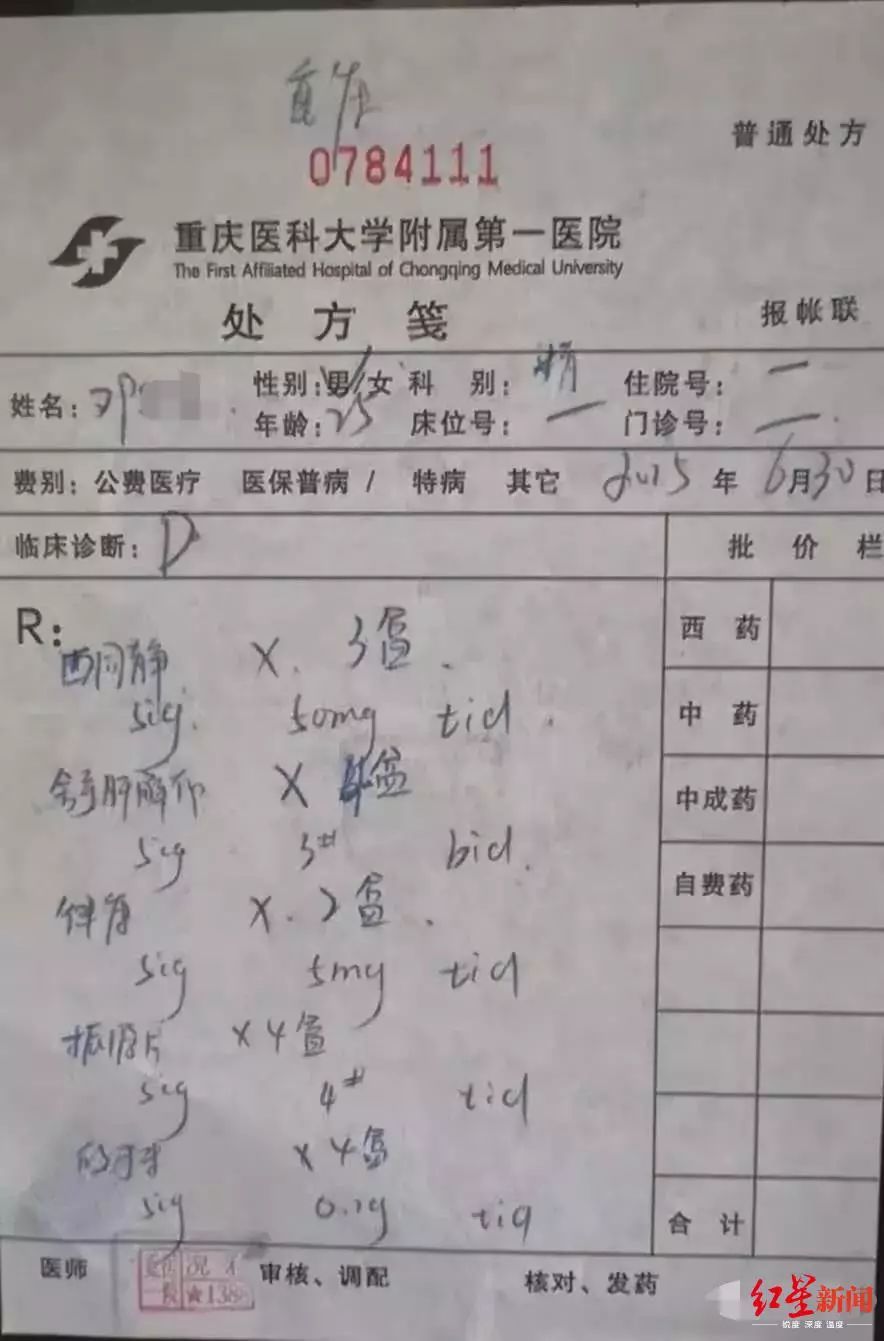 0784111
普通处方
重庆医科大学附属第一医院
The First Affiliated Hospital of Chongqing Medical University
处方笺
报帐联
姓名:邓
性别:男/女 科别: 住院号:一
年龄:25 床位号:一 门诊号:一
费别:公费医疗 医保普病/ 特病 其它 2015年6月30日
临床诊断:D
批价栏
R:
西同静 X. 3盒.
sig. 50mg tid.
舒肝解郁 X 4盒
sig 3# bid.
X. 2盒.
sig 5mg tid
X4盒
sig 4# tid
X4盒
sig 0.2g tid
西药
中药
中成药
自费药
合计
医师 审核、调配 核对、发药
★138
红星新闻
锐度 深度 温度